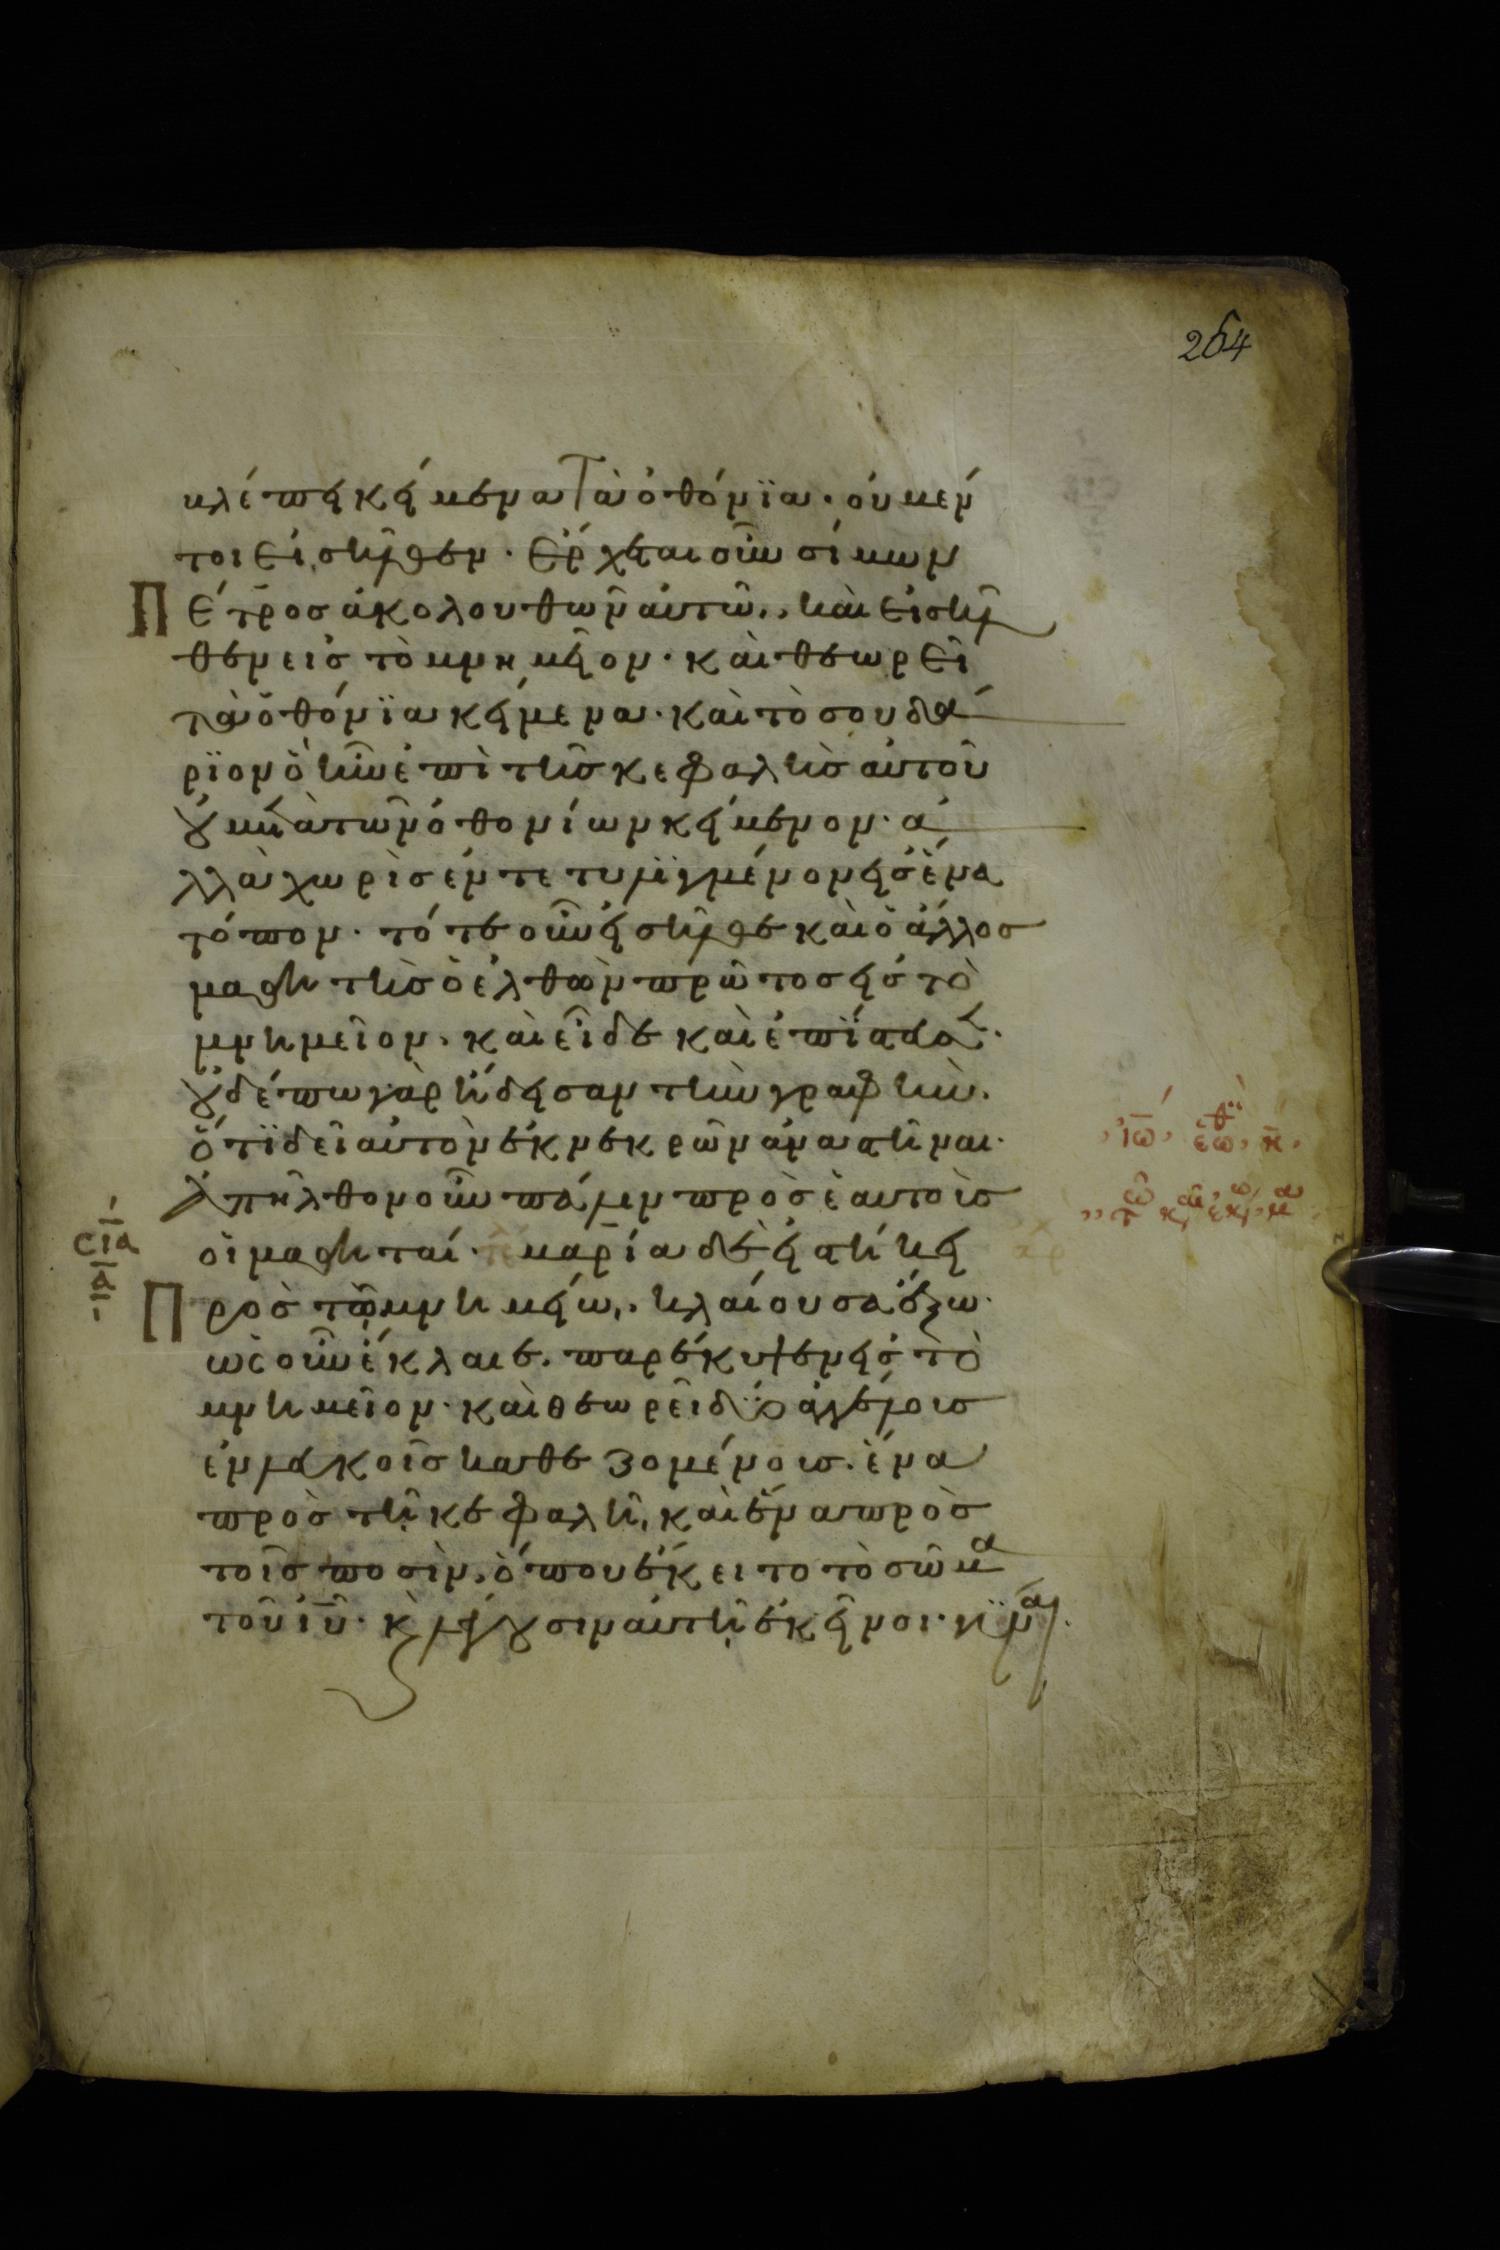 264
βλέπει κείμενα τὰ ὀθόνϊα· οὐ μέν
τοι εἰσῆλθεν· Ἔρχεται οὖν σίμων
Πέτρος ἀκολουθῶν αὐτῶ, καὶ εἰσῆλ
θεν εἰς τὸ μνημεῖον· καὶ θεωρεῖ
τὰ ὀθόνϊα κείμενα· καὶ τὸ σουδά
ρϊον ὃ ἦν ἐπὶ τῆς κεφαλῆς αὐτοῦ
οὐ μετὰ τῶν ὀθονίων κείμενον· ἀ
λλὰ χωρὶς ἐντετυλϊγμένον εἰς ἕνα
τόπον· τότε οὖν εἰσῆλθε καὶ ὁ ἄλλος
μαθητὴς ὁ ἐλθὼν πρῶτος εἰς τὸ
μνημεῖον· καὶ εἶδε καὶ ἐπίστευσεν·
οὐδέπω γὰρ ἤδεισαν τὴν γραφὴν·
ὅτϊ δεῖ αὐτὸν ἐκ νεκρῶν ἀναστῆναι·
ἀπῆλθον οὖν πάλιν πρὸς ἑαυτοὺς
οἱ μαθηταί· μαρία δὲ εἱστήκει
Πρὸς τῶ μνημείω, κλαίουσα ἔξω·
ὡς οὖν ἔκλαιε· παρέκυψεν εἰς τὸ
μνημεῖον· καὶ θεωρεῖ δύο ἀγγέλους
ἐν λευκοῖς καθεζομένους· ἕνα
πρὸς τῆ κεφαλῆ, καὶ ἕνα πρὸς
τοῖς ποσὶν, ὅπου ἔκειτο τὸ σῶμα
τοῦ ἰυ· κὶ λέγουσιν αὐτῆ ἐκεῖνοι· γύναι
σια
ι
ἰω ἑω θ η